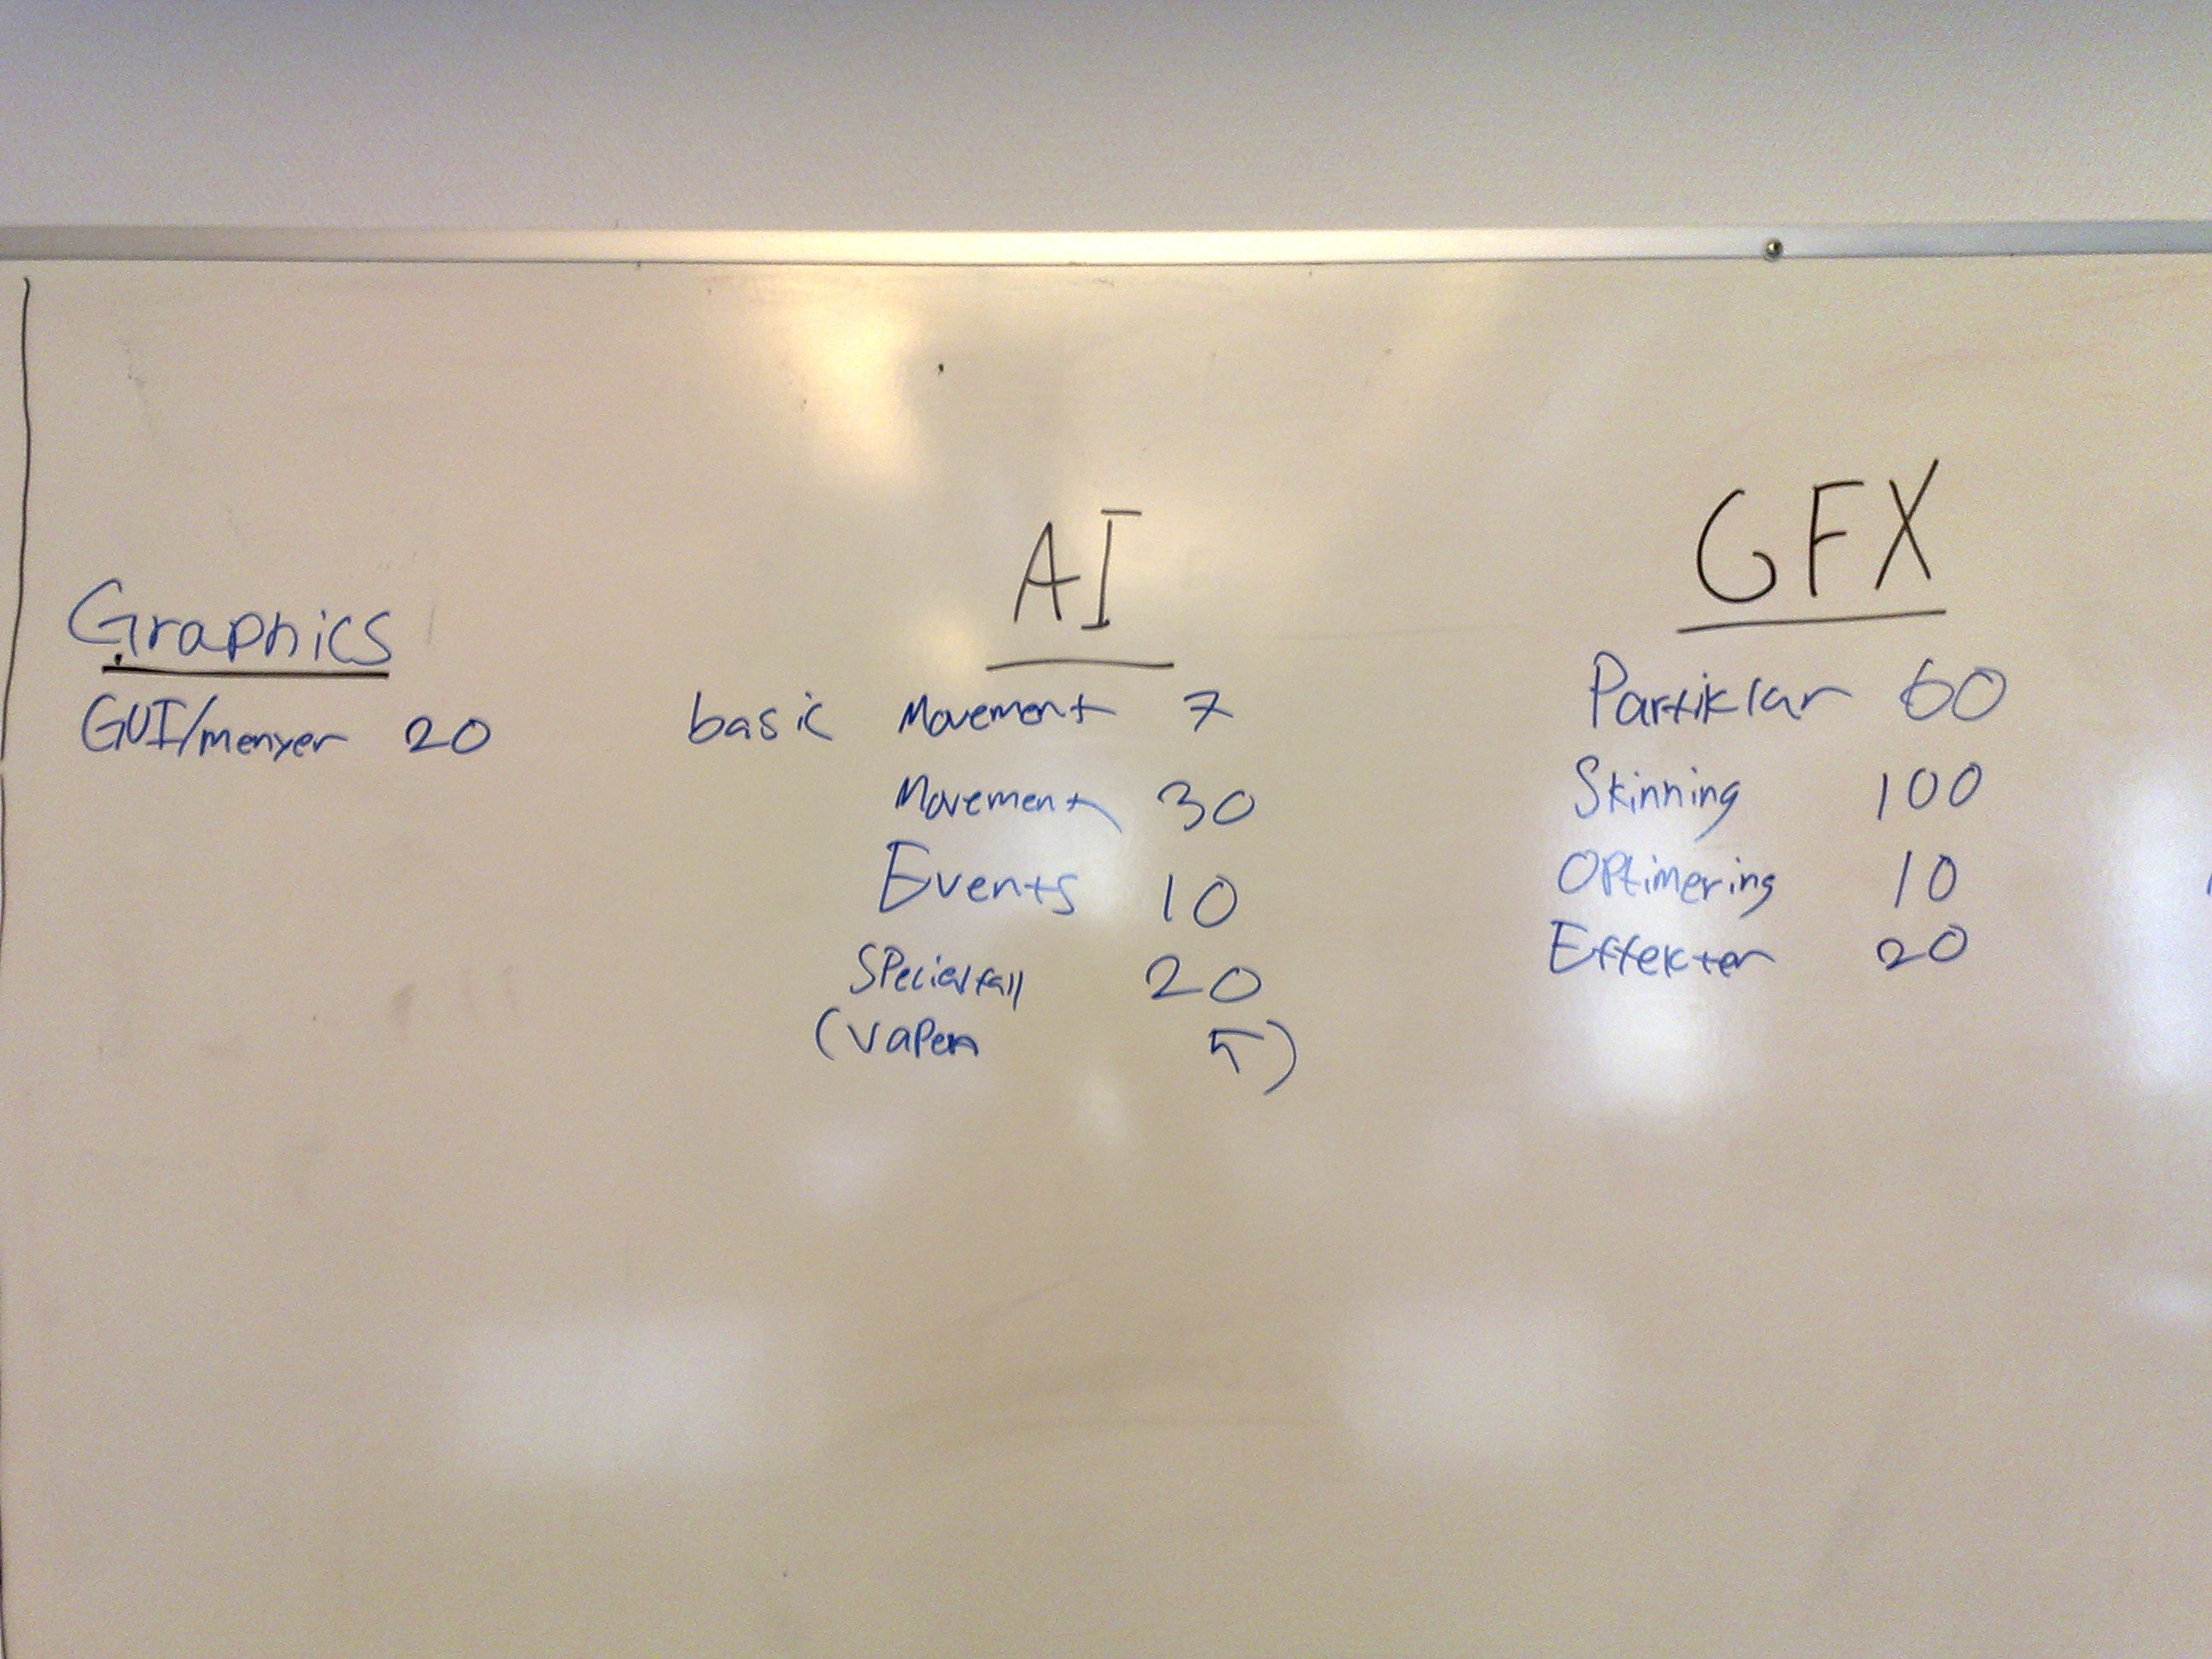 Graphics
GUI/menyer 20
AI
basic Movement 7
Movement 30
Events 10
Specialfall 20
(vapen 5)
GFX
Partiklar 60
Skinning 100
Optimering 10
Effekter 20